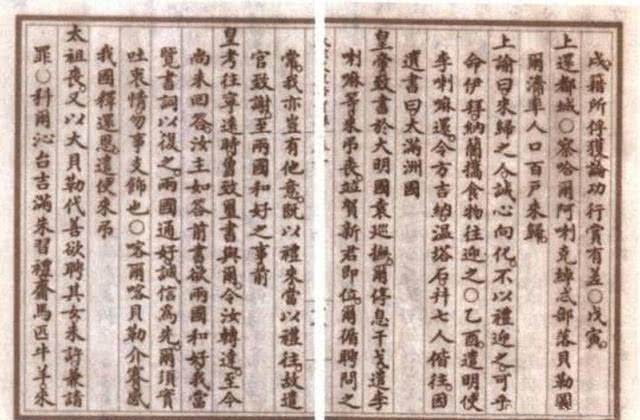 成。籍所得獲論功行賞有差○戊寅。
上還都城○察哈爾阿喇克綽忒部落貝勒圖
爾濟率人口百戶來歸。
上諭曰來歸之人誠心向化。不以禮迎之。可乎
命伊拜納蘭攜食物往迎之○乙酉。遣明使
李喇嘛還。令方吉納溫塔石幷七人偕往。因
遺書曰大滿洲國
皇帝致書於大明國袁巡撫。爾停息干戈遣李
喇嘛等來弔喪。並賀新君即位。爾循聘問之
常。我亦豈有他意。既以禮來當以禮往。故遣
官致謝。至兩國和好之事前
皇考往寧遠時曾致璽書與爾。令汝轉達。至今
尚未回答。汝主如答前書欲兩國和好我當
覽書詞以復之。兩國通好誠信為先。爾須實
吐衷情勿事支飾也○喀爾喀貝勒介賽感
我國釋還恩。遣使來弔
太祖喪。又以大貝勒代善欲聘其女來許兼請
罪○科爾沁台吉滿朱習禮齎馬匹牛羊來